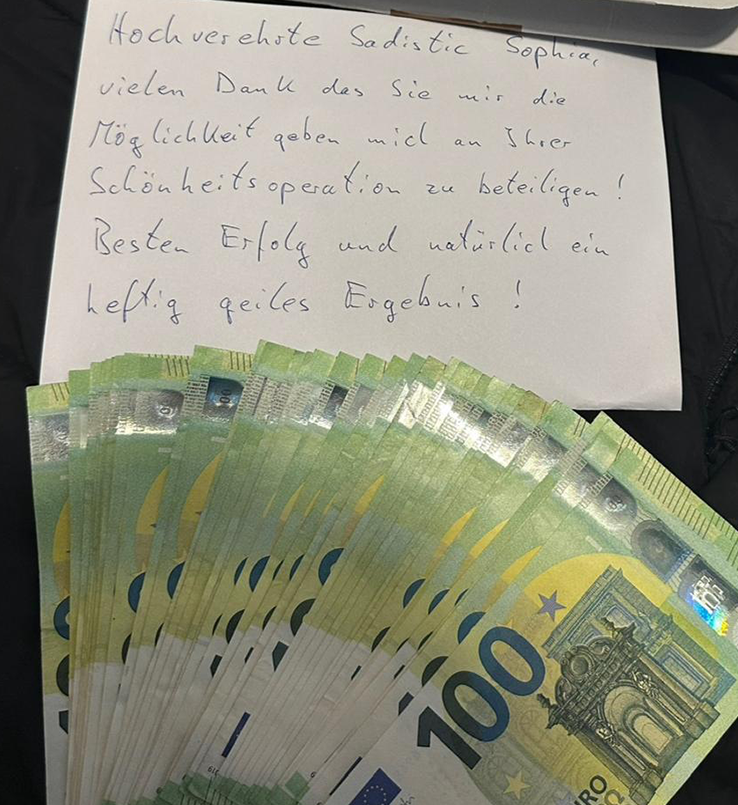 Hochverehrte Sadistic Sophia,
vielen Dank das Sie mir die
Möglichkeit geben mich an Ihrer
Schönheitsoperation zu beteiligen!
Besten Erfolg und natürlich ein
heftig geiles Ergebnis!
100
EURO